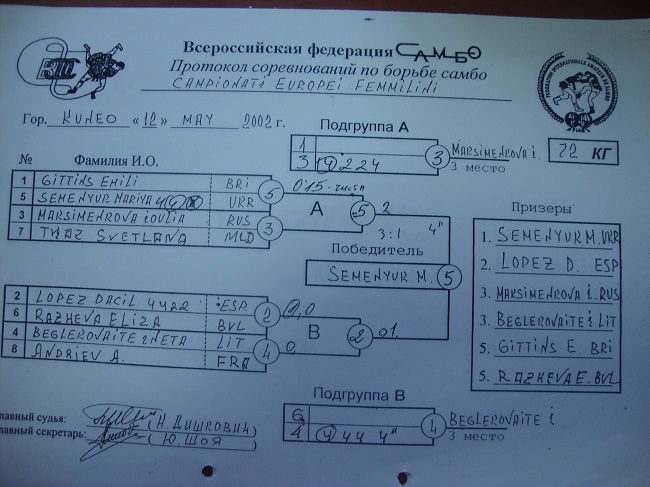 Всероссийская федерация САМБО
Протокол соревнований по борьбе самбо
CAMPIONATI EUROPEI FEMMILINI
Гор. KUNEO «12» MAY 2002 г.
Подгруппа А
1
3 4 2 2 4
3
MARSIMENROVA i.
3 место
72 КГ
№ Фамилия И.О.
1 GITTINS EMILI BRI
5 SEMENYUR MARIYA URR
3 MARSIMENROVA IOULIA RUS
7 TMAZ SVETLANA MLD
5
3
А
5
2
3:1 4"
Победитель
SEMENYUR M. 5
2 LOPEZ DACIL 4422 ESP
6 RAZHEVA ELIZA BVL
4 BEGLEROVAITE ZNETA LIT
8 ANDRIEV A. FRA
2
4
В
2
01
Призеры
1. SEMENYUR M. URR
2. LOPEZ D. ESP
3. MARSIMENROVA i. RUS
3. BEGLEROVAITE i LIT
5. GITTINS E. BRI
5. RAZHEVA E. BVL
Подгруппа В
6
4 4 44 4"
4
BEGLEROVAITE i
3 место
лавный судья: (Н. ДИШКОВИЧ)
лавный секретарь: (Ю. ШОЯ)